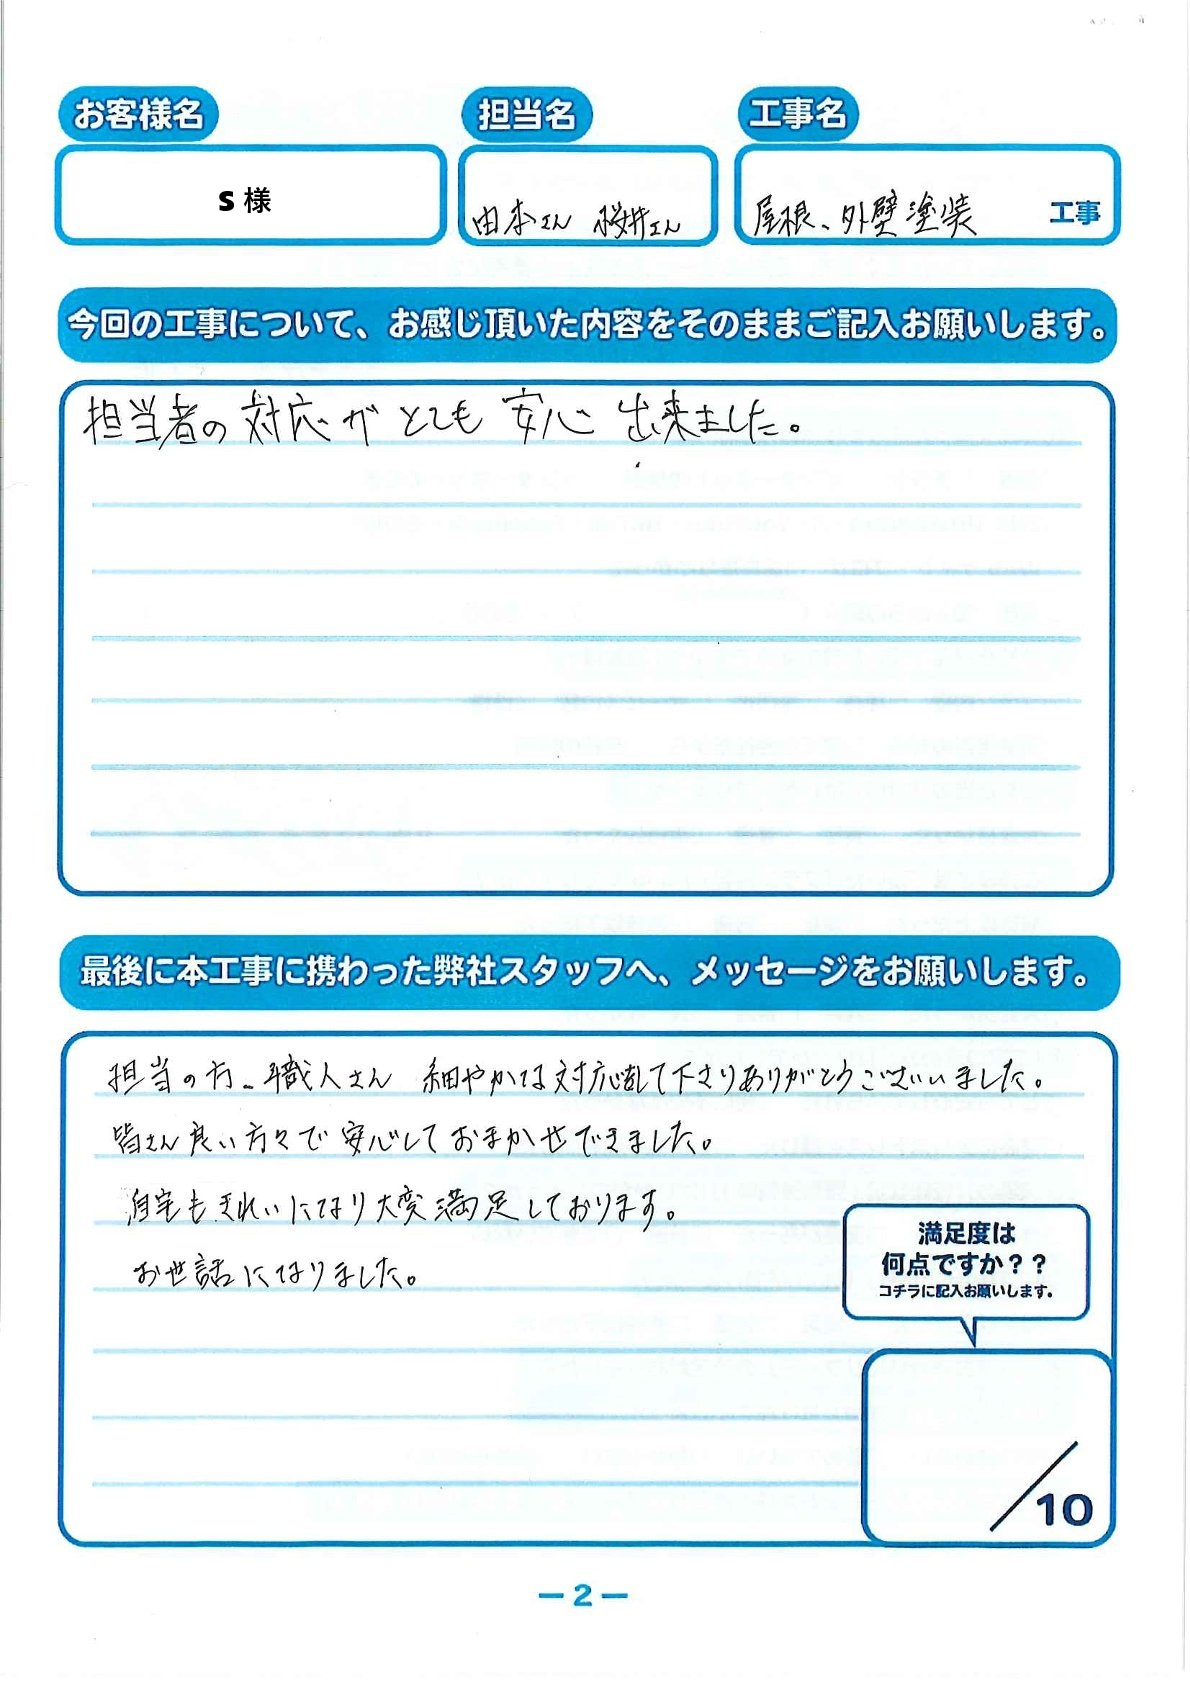 お客様名 担当名 工事名
S 様 由本さん 桜井さん 屋根、外壁塗装 工事
今回の工事について、お感じ頂いた内容をそのままご記入お願いします。
担当者の対応がとても安心出来ました。
最後に本工事に携わった弊社スタッフへ、メッセージをお願いします。
担当の方、職人さん 細やかな対応をして下さりありがとうございました。
皆さん良い方々で安心しておまかせできました。
自宅もきれいになり大変満足しております。
お世話になりました。
満足度は
何点ですか??
コチラに記入お願いします。
/10
— 2 —